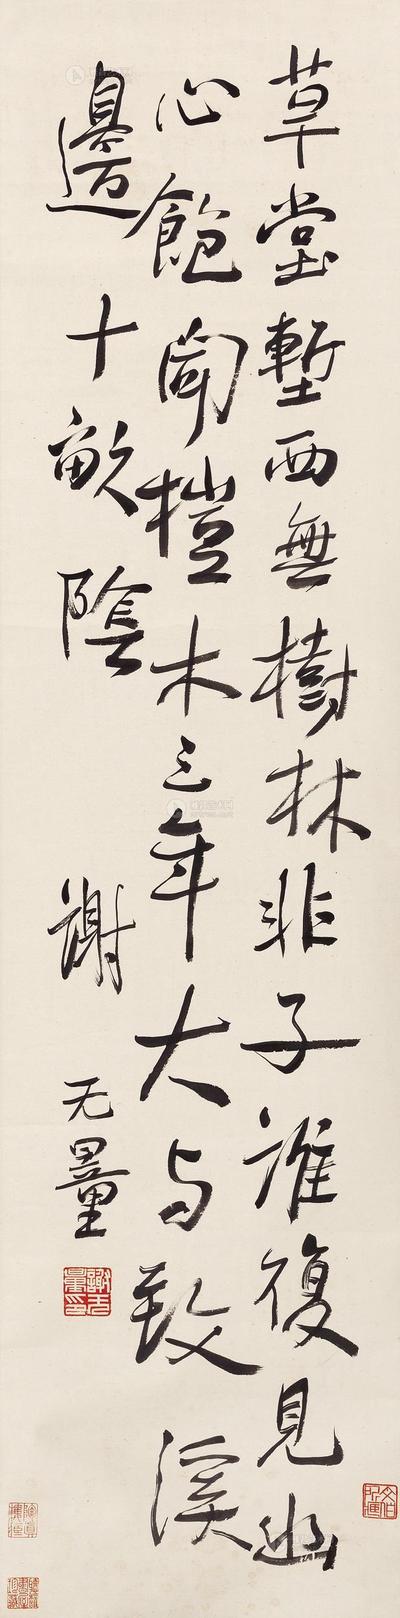 草堂塹西無樹林非子誰復見幽
心飽聞榿木三年大与致溪
邊十畝陰
謝
无量